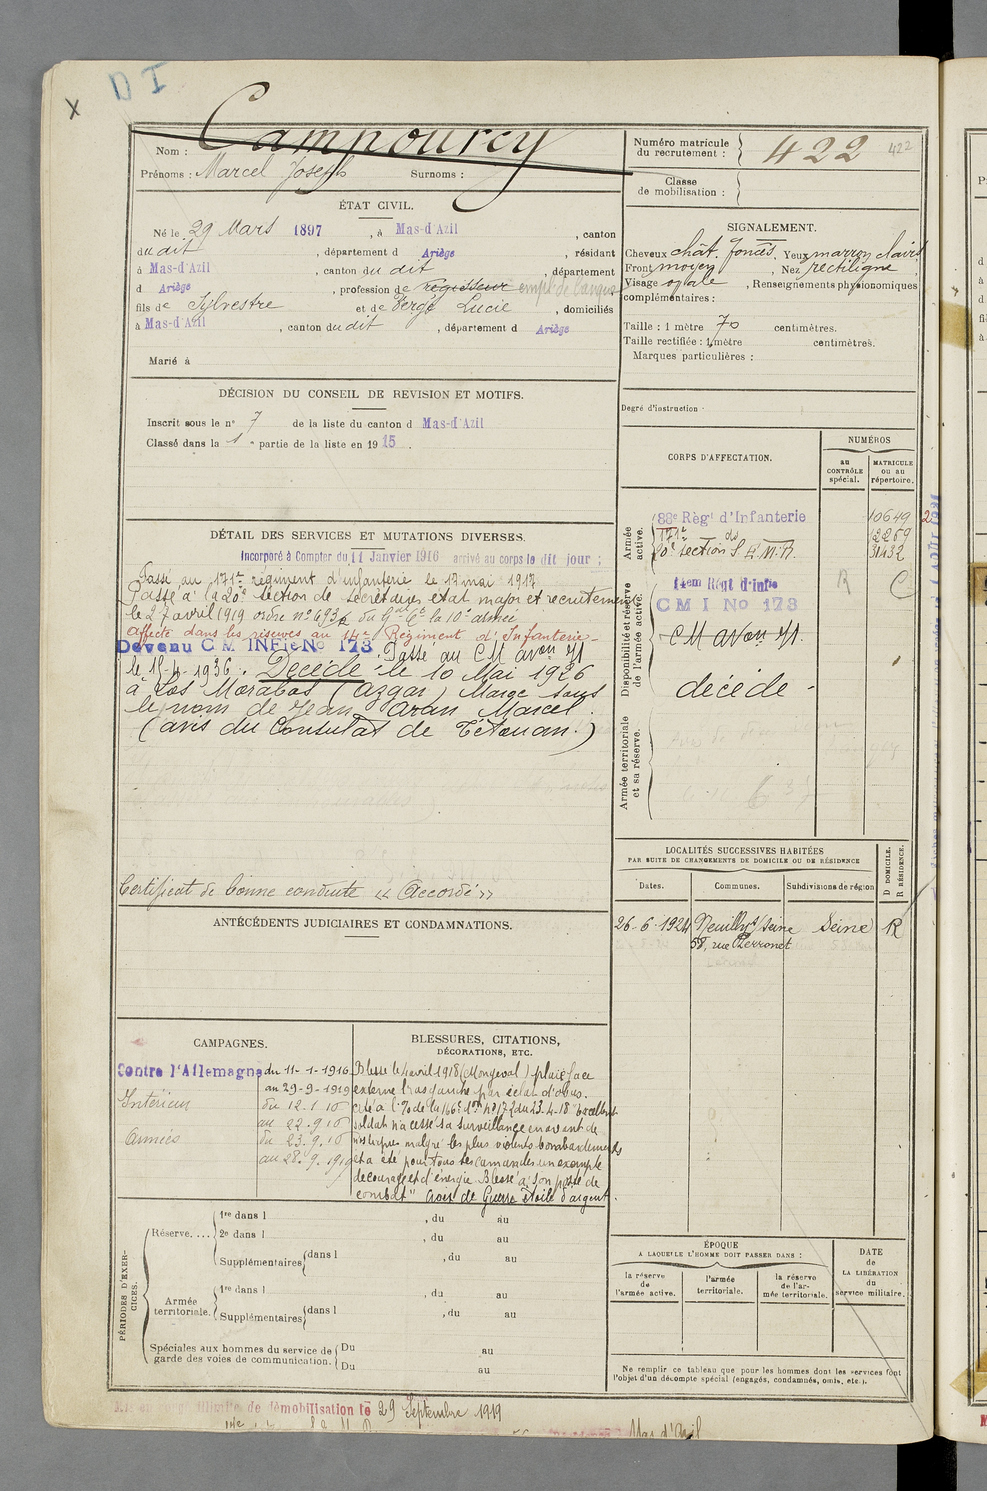 D I
X
Campourcy
Nom :
Prénoms : Marcel Joseph Surnoms :
Numéro matricule du recrutement : 422 422
Classe de mobilisation :
ÉTAT CIVIL.
Né le 29 Mars 1897, à Mas-d'Azil, canton
du dit, département d Ariège, résidant
à Mas-d'Azil, canton du dit, département
d Ariège, profession de régisseur
fils de Sylvestre et de Bergé Lucie, domiciliés
à Mas-d'Azil, canton du dit, département d Ariège
Marié à
SIGNALEMENT.
Cheveux chât. foncés. Yeux marron clairs
Front moyen, Nez rectiligne
Visage ovale, Renseignements physionomiques
complémentaires :
Taille : 1 mètre 70 centimètres.
Taille rectifiée : 1 mètre centimètres.
Marques particulières :
Degré d'instruction
DÉCISION DU CONSEIL DE REVISION ET MOTIFS.
Inscrit sous le n° 7 de la liste du canton d Mas-d'Azil
Classé dans la 1e partie de la liste en 1915.
CORPS D'AFFECTATION.
NUMÉROS
au CONTRÔLE spécial.
MATRICULE ou au répertoire.
Armée active.
88e Régt d'Infanterie 10649
171e do 12259
20e Section S E M R. 31432
Disponibilité et réserve de l'armée active.
14em Régt d'Infie R C
CM I No 173
CM avon 71
décédé -
Armée territoriale et sa réserve.
DÉTAIL DES SERVICES ET MUTATIONS DIVERSES.
Incorporé à Compter du 11 Janvier 1916 arrivé au corps le dit jour ;
Passé au 171e régiment d'infanterie le 17 mai 1917
Passé à la 20e section de secrétaires état major et recrutement
le 27 avril 1919 ordre n° 693 du Gal Ct la 10e armée
Affecté dans les réserves au 14e Régiment d'Infanterie-
Devenu C M INFie No 173. Passé au CM avon 71
le 15-4-1936. Décédé le 10 Mai 1926
à Los Morabos (Azgar) Maroc sous
le nom de Jean Aran Marcel.
(avis du Consulat de Tétouan.)
Certificat de bonne conduite « Accordé »
ANTÉCÉDENTS JUDICIAIRES ET CONDAMNATIONS.
LOCALITÉS SUCCESSIVES HABITÉES
PAR SUITE DE CHANGEMENTS DE DOMICILE OU DE RÉSIDENCE
Dates. Communes. Subdivisions de région D DOMICILE. R RÉSIDENCE.
26-6-1924 Neuilly s/ Seine Seine R
58, rue Perronet
CAMPAGNES.
Contre l'Allemagne du 11-1-1916
au 29-9-1919
Intérieur du 12-1-16
au 22.9.16
Armées du 23.9.16
au 28.9.1919
BLESSURES, CITATIONS,
DÉCORATIONS, ETC.
Blessé le 4 avril 1918 (Mongeval) plaie face
externe bras gauche par éclat d'obus.
cité à l'O de la 166e don No 177 du 23-4-18 "Excellent
soldat n'a cessé sa surveillance en avant de
nos lignes malgré les plus violents bombardements
et a été pour tous ses camarades un exemple
de courage et d'énergie. Blessé à son poste de
combat" Croix de Guerre étoile d'argent.
PÉRIODES D'EXERCICES.
Réserve.... 1re dans l , du au
2e dans l , du au
Supplémentaires dans l , du au
Armée territoriale. 1re dans l , du au
Supplémentaires dans l , du au
Spéciales aux hommes du service de garde des voies de communication. Du au
Du au
ÉPOQUE
A LAQUELLE L'HOMME DOIT PASSER DANS :
la réserve de l'armée active.
l'armée territoriale.
la réserve de l'armée territoriale.
DATE de LA LIBÉRATION du service militaire.
Ne remplir ce tableau que pour les hommes dont les services font
l'objet d'un décompte spécial (engagés, condamnés, omis, etc.).
Mis en congé illimité de démobilisation le 29 Septembre 1919
Mas d'Azil